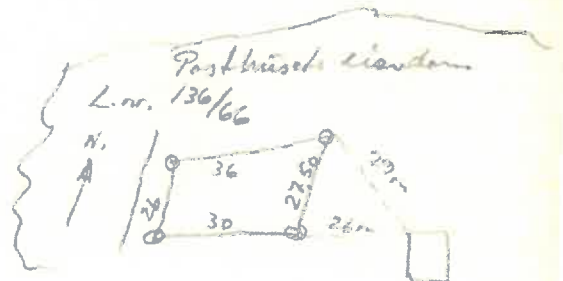 Posthuset eiendom
L.nr. 136/66
N.
36
27,50
30
26m